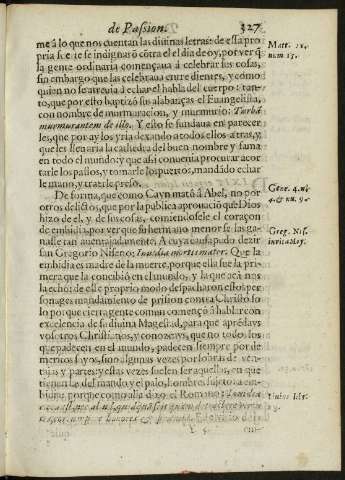 de Passion. 327
me à lo que nos cuentan las diuinas letras: de essa pro
pria se indignarō cōtra el el dia de oy, por ver q̄
la gente ordinaria començaua à celebrar sus cosas,
sin embargo que las celebraua entre dientes, y como
quien no se atreuia à echar el habla del cuerpo: tan-
to, que por esto baptizò sus alabanças el Euangelista,
con nombre de murmuracion, y murmurio: Turba
murmurantem de illo. Y esto se fundaua en parecer
les, que por ay los yria dexando à todos ellos atras, y
que les lleuaria la cathedra del buen nombre y fama
en todo el mundo: y que assi conuenia procurar acor
tarle los passos, y tomarle los puertos, mandādo echar
le mano, y traerle preso.
De forma, que como Cayn matò à Abel, no por
otros delictos, que por la publica aprouaciō que Dios
hizo de el, y de sus cosas, comiendosele el coraçon
de embidia, por ver que su hermano menor se las ga-
nasse tan auentajadamente. A cuya causa pudo dezir
san Gregorio Niseno: Inuidia mortis mater. Que la
embidia es madre de la muerte, porque ella fue la pri-
mera que la concibiò en el mundo, y la que acà nos
la echò: de esse proprio modo despacharon estos per
sonages mandamiento de prision contra Christo so
lo porque cierta gente comun començò à hablar con
excelencia de su diuina Magestad, para que aprēdays
vosotros Christianos, y conozcays, que no todos los
que padecen en el mundo, padecen siempre por de
meritos suyos, sino algunas vezes por sobras de ven-
tajas y partes: y estas vezes suelen ser aquellas, en que
tienen las del mando y el palo, hombres sujetos à em-
bidia: porque como allà dixo el Romano:
Matt. 21.
num 15.
Gene. 4. nu.
4. & nu. 9.
Greg. Nis.
Liuius lib.